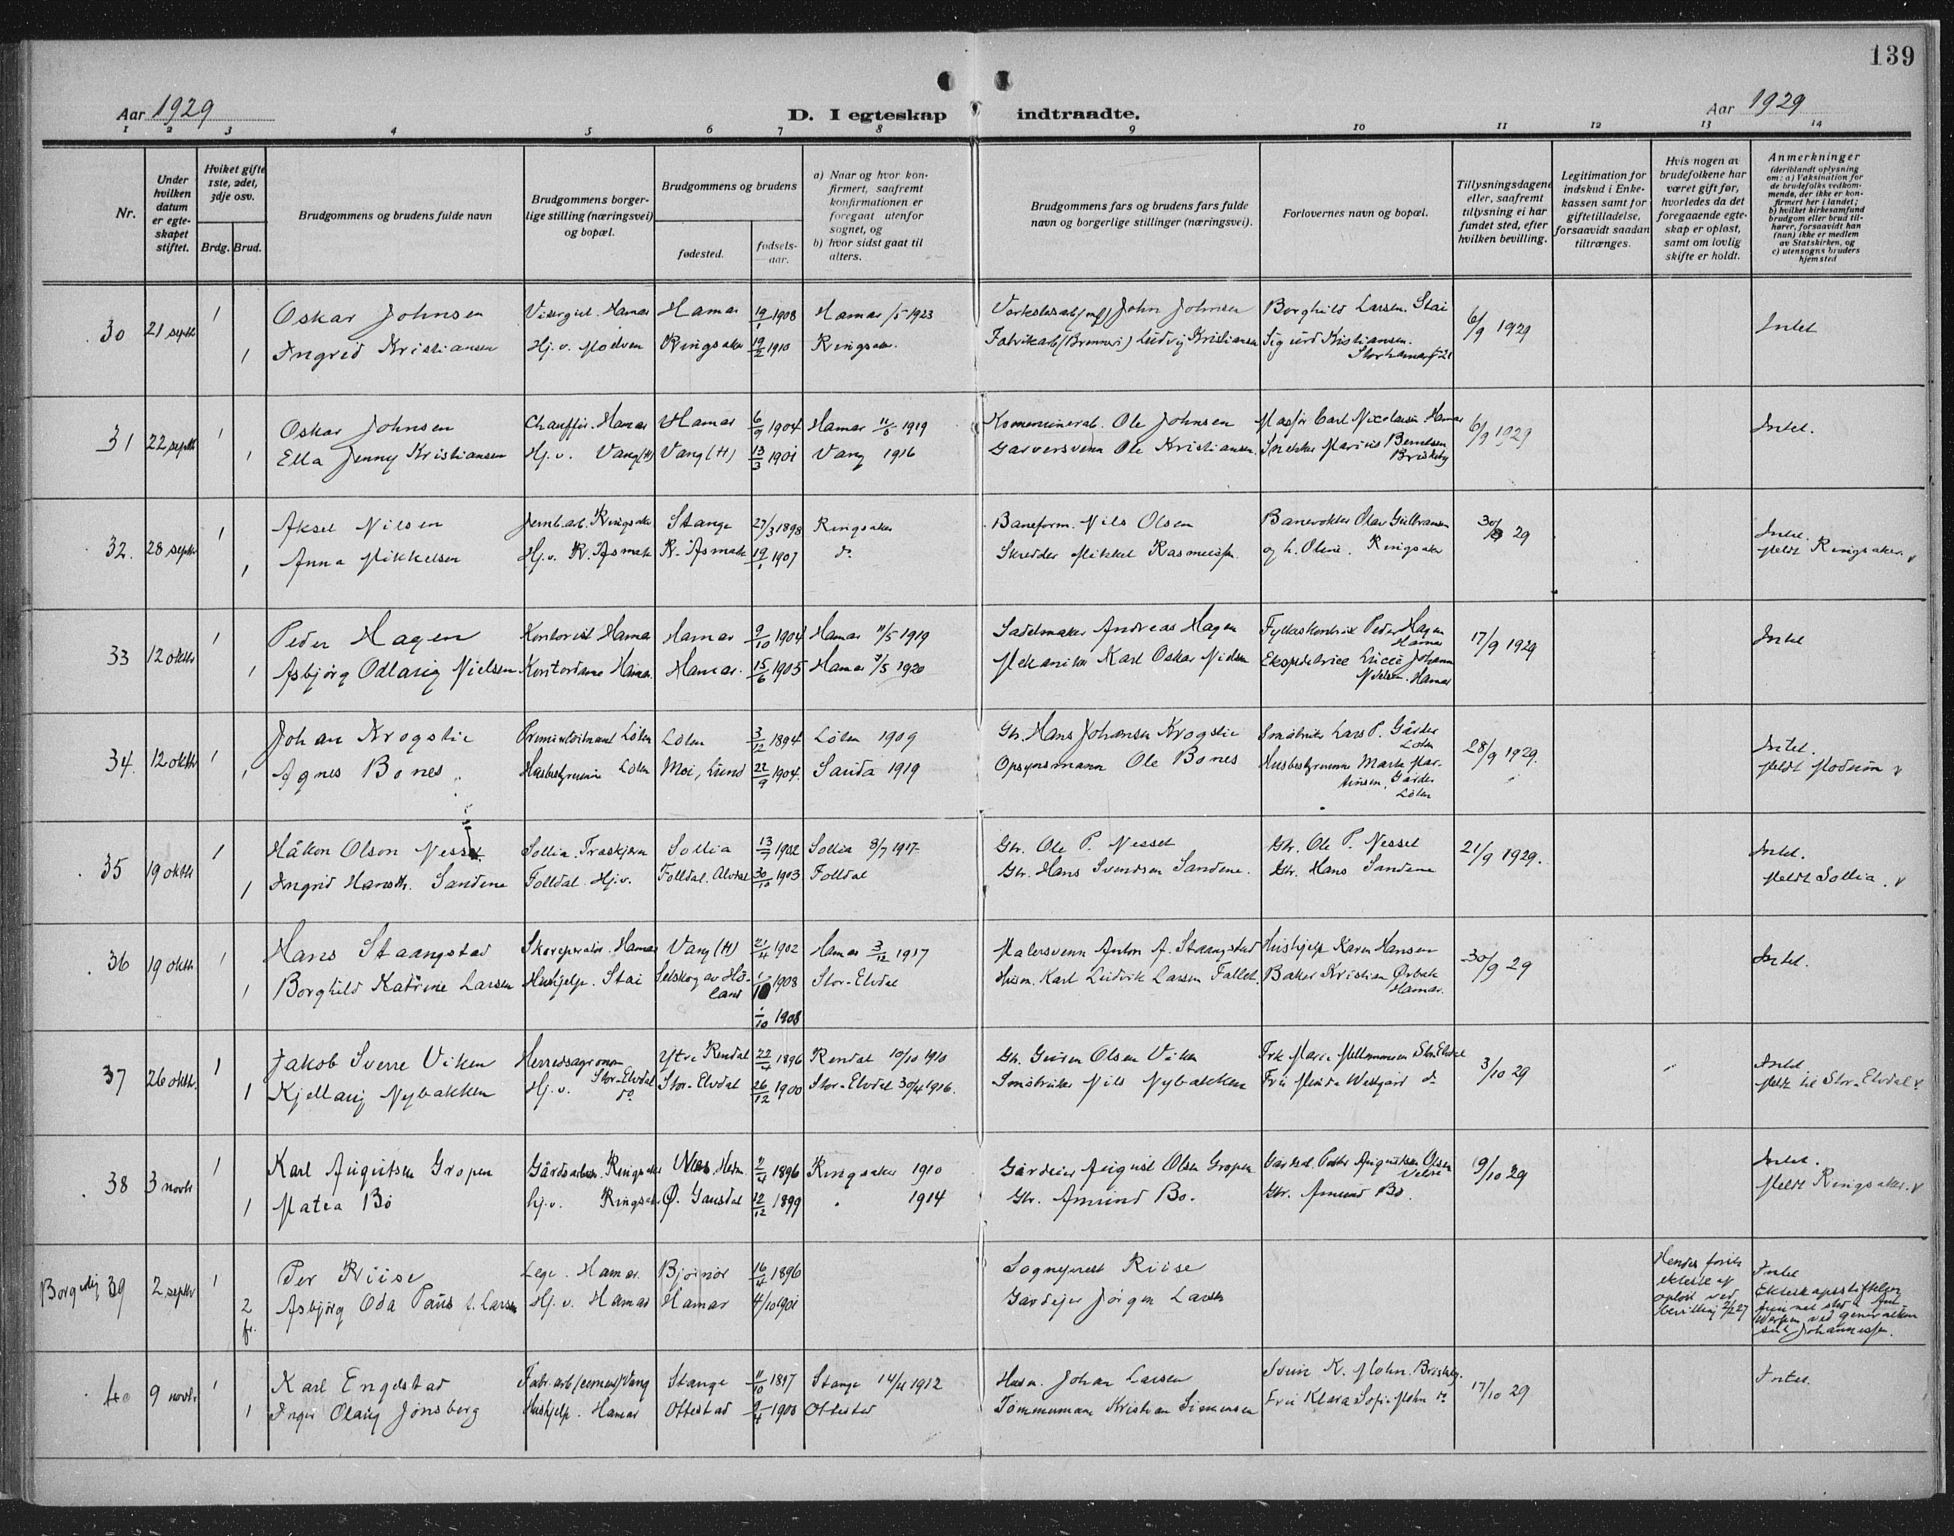 139
Aar 1929
D. I egteskap indtraadte.
Aar 1929
1 2 3 4 5 6 7 8 9 10 11 12 13 14
Nr.
Under hvilken datum er egteskapet stiftet.
Hviket gifte 1ste, 2det, 3dje osv.
Brdg. Brud.
Brudgommens og brudens fulde navn
Brudgommens borgerlige stilling (næringsvei) og bopæl.
Brudgommens og brudens
fødested.
fødselsaar.
a) Naar og hvor konfirmert, saafremt konfirmationen er foregaat utenfor sognet, og
b) hvor sidst gaat til alters.
Brudgommens fars og brudens fars fulde navn og borgerlige stillinger (næringsvei).
Forlovernes navn og bopæl.
Tillysningsdagene eller, saafremt tillysning ei har fundet sted, efter hvilken bevilling.
Legitimation for indskud i Enkekassen samt for giftetilladelse, forsaavidt saadan tiltrænges.
Hvis nogen av brudefolkene har været gift før, hvorledes da det foregaaende egteskap er opløst, samt om lovlig skifte er holdt.
Anmerkninger (deriblandt oplysning om: a) Vaksination for de brudefolks vedkommende, der ikke er konfirmert her i landet; b) hvilket kirkesamfund brudgom eller brud tilhører, forsaavidt han (hun) ikke er medlem av Statskirken, og c) utensogns bruders hjemsted
30 21 septbr 1 Oskar Johnsen Hamar Hamar 19/1 1908 Hamar /5 1923 John Johnsen Borghild Larsen. Stai 6/9 1929 Intet
1 Ingrid Kristiansen Hj. v. Moelven Ringsaker 19/2 1910 Ringsaker. Fabrikarb. (Brenneri) Ludvig Kristiansen Sigurd Kristiansen. Storhamarg 21
31 22 septbr 1 Oskar Johnsen Chauffør. Hamar Hamar 6/9 1904 Hamar 11/5 1919 Kommunearb. Ole Johnsen Carl Nicolaisen Hamar 6/9 1929 Intet.
1 Ella Jenny Kristiansen Hj. v. Vang (H) Vang (H) 13/3 1901 Vang 1916 Garversvenn Ole Kristiansen. Snekker Marius Berntsen Briskeby
32. 28 septbr 1 Aksel Nilsen Jernb.arb. Ringsaker Stange 27/3 1898 Ringsaker Baneform. Nils Olsen Banevokter Olav Gulbransen 29 Intet.
1 Anna Mikkelsen Hj. v. R. Åsmark R. Åsmark 19/1 1907 do. Skredder Mikkel Rasmussen. og h. Oline. Ringsaker Meldt Ringsaker. v
33 12 oktbr 1 Peder Hagen Kontorist Hamar Hamar 9/10 1904 Hamar 11/5 1919 Sadelmaker Andreas Hagen Peder Hagen Hamar 17/9 1929 Intet
1 Asbjørg Odlaug Nielsen Kontordame Hamar Hamar. 15/6 1905 Hamar 7/5 1920 Mekaniker Karl Oskar Nielsen Ekspeditrice Lucie Johann Nielsen. Hamar
34. 12 oktbr 1 Johan Krogstie Premierløitnant Løten Løten 3/12 1894 Løten 1909 Gbr. Hans Johansen Krogstie Småbruker Lars P. Gårder Løten 28/9 1929. Intet.
1 Agnes Bones Husbestyrerinne Løten Moi, Lund 22/9 1904 Sauda 1919 Opsynsmann Ole Bones Husbestyrerinne Marta Martinsen. Gårder Løten Meldt Modum v
35 19 oktbr 1 Håkon Olson Nesset Sollia. Trasykjøren Sollia 13/7 1902 Sollia 8/7 1917 Gbr. Ole P. Nesset Gbr. Ole P. Nesset 21/9 1929. Intet.
1 Ingrid Hansdtr. Sandene Folldal. Hj.v. Folldal. Alvdal 30/10 1903 Folldal Gbr. Hans Svendsen Sandene. Gbr. Hans Sandene Meldt Sollia. v
36 19 oktbr 1 Hans Staangstad Skoreparatør. Hamar Vang (H) 21/4 1902 Hamar 3/12 1917 Malersvenn Anton A. Staangstad Hushjelp Karen Hansen 30/9 29 Intet.
1 Borghild Katrine Larsen Hushjelp. Stai Setskog av Høland 1/10 1908 Stor-Elvdal Husm. Karl Ludvik Larsen Fallet. Baker Kristian Ørbæk Hamar.
1/10 1908
37 26 oktbr. 1 Jakob Sverre Viken Herredsagronom Stor-Elvdal Ytre Rendal 22/4 1896 Rendal 10/10 1910 Gbr. Olsen Viken Frk Marie Stor-Elvdal 3/10 29 Intet
1 Kjellaug Nybakken Hj. v. do Stor-Elvdal 26/12 1900 Stor-Elvdal 30/4 1916. Småbruker Nils Nybakken Fru Westgård do Meldt til Stor-Elvdal v
38 3 novbr 1 Karl Augustsen Gropen Gårdsarbeider Ringsaker Nes Hedm 2/4 1896 Ringsaker 1910 Gårdeier August Olsen Gropen Augustsen Olsen Veldre 9/10 29 Intet.
1 Matea Bø hj.v. Ringsaker Ø. Gausdal 12/12 1899 " 1914 Gbr. Amund Bø. Gbr. Amund Bø. Meldt Ringsaker. v
Borgerlig 39 2 septbr 1 Per Riise Lege. Hamar. Bjørnør 16/4 1896 Sogneprest Riise Hendes forrige ekteskap opløst ved bevilling 2/2 27 Intet
2 fr. Asbjørg Oda Paus f. Larsen Hj. v. Hamar Hamar 4/10 1901 Gårdeier Jørgen Larsen Ekteskapsstiftelsen funnet sted i Antwerpen ved generalkonsul Johannessen.
40 9 novbr. 1 Karl Engelstad Fabr.arb. (cement) Vang Stange 11/10 1897 Stange 14/4 1912 Husm. Johan Larsen Svein K. Mohn. Briskeby 17/10 29 Intet.
1 Inger Olaug Jønsberg Hushjelp. Hamar Ottestad 9/4 1908 Ottestad Tømmermann Kristian Simensen Fru Klara Sofie Mohn do